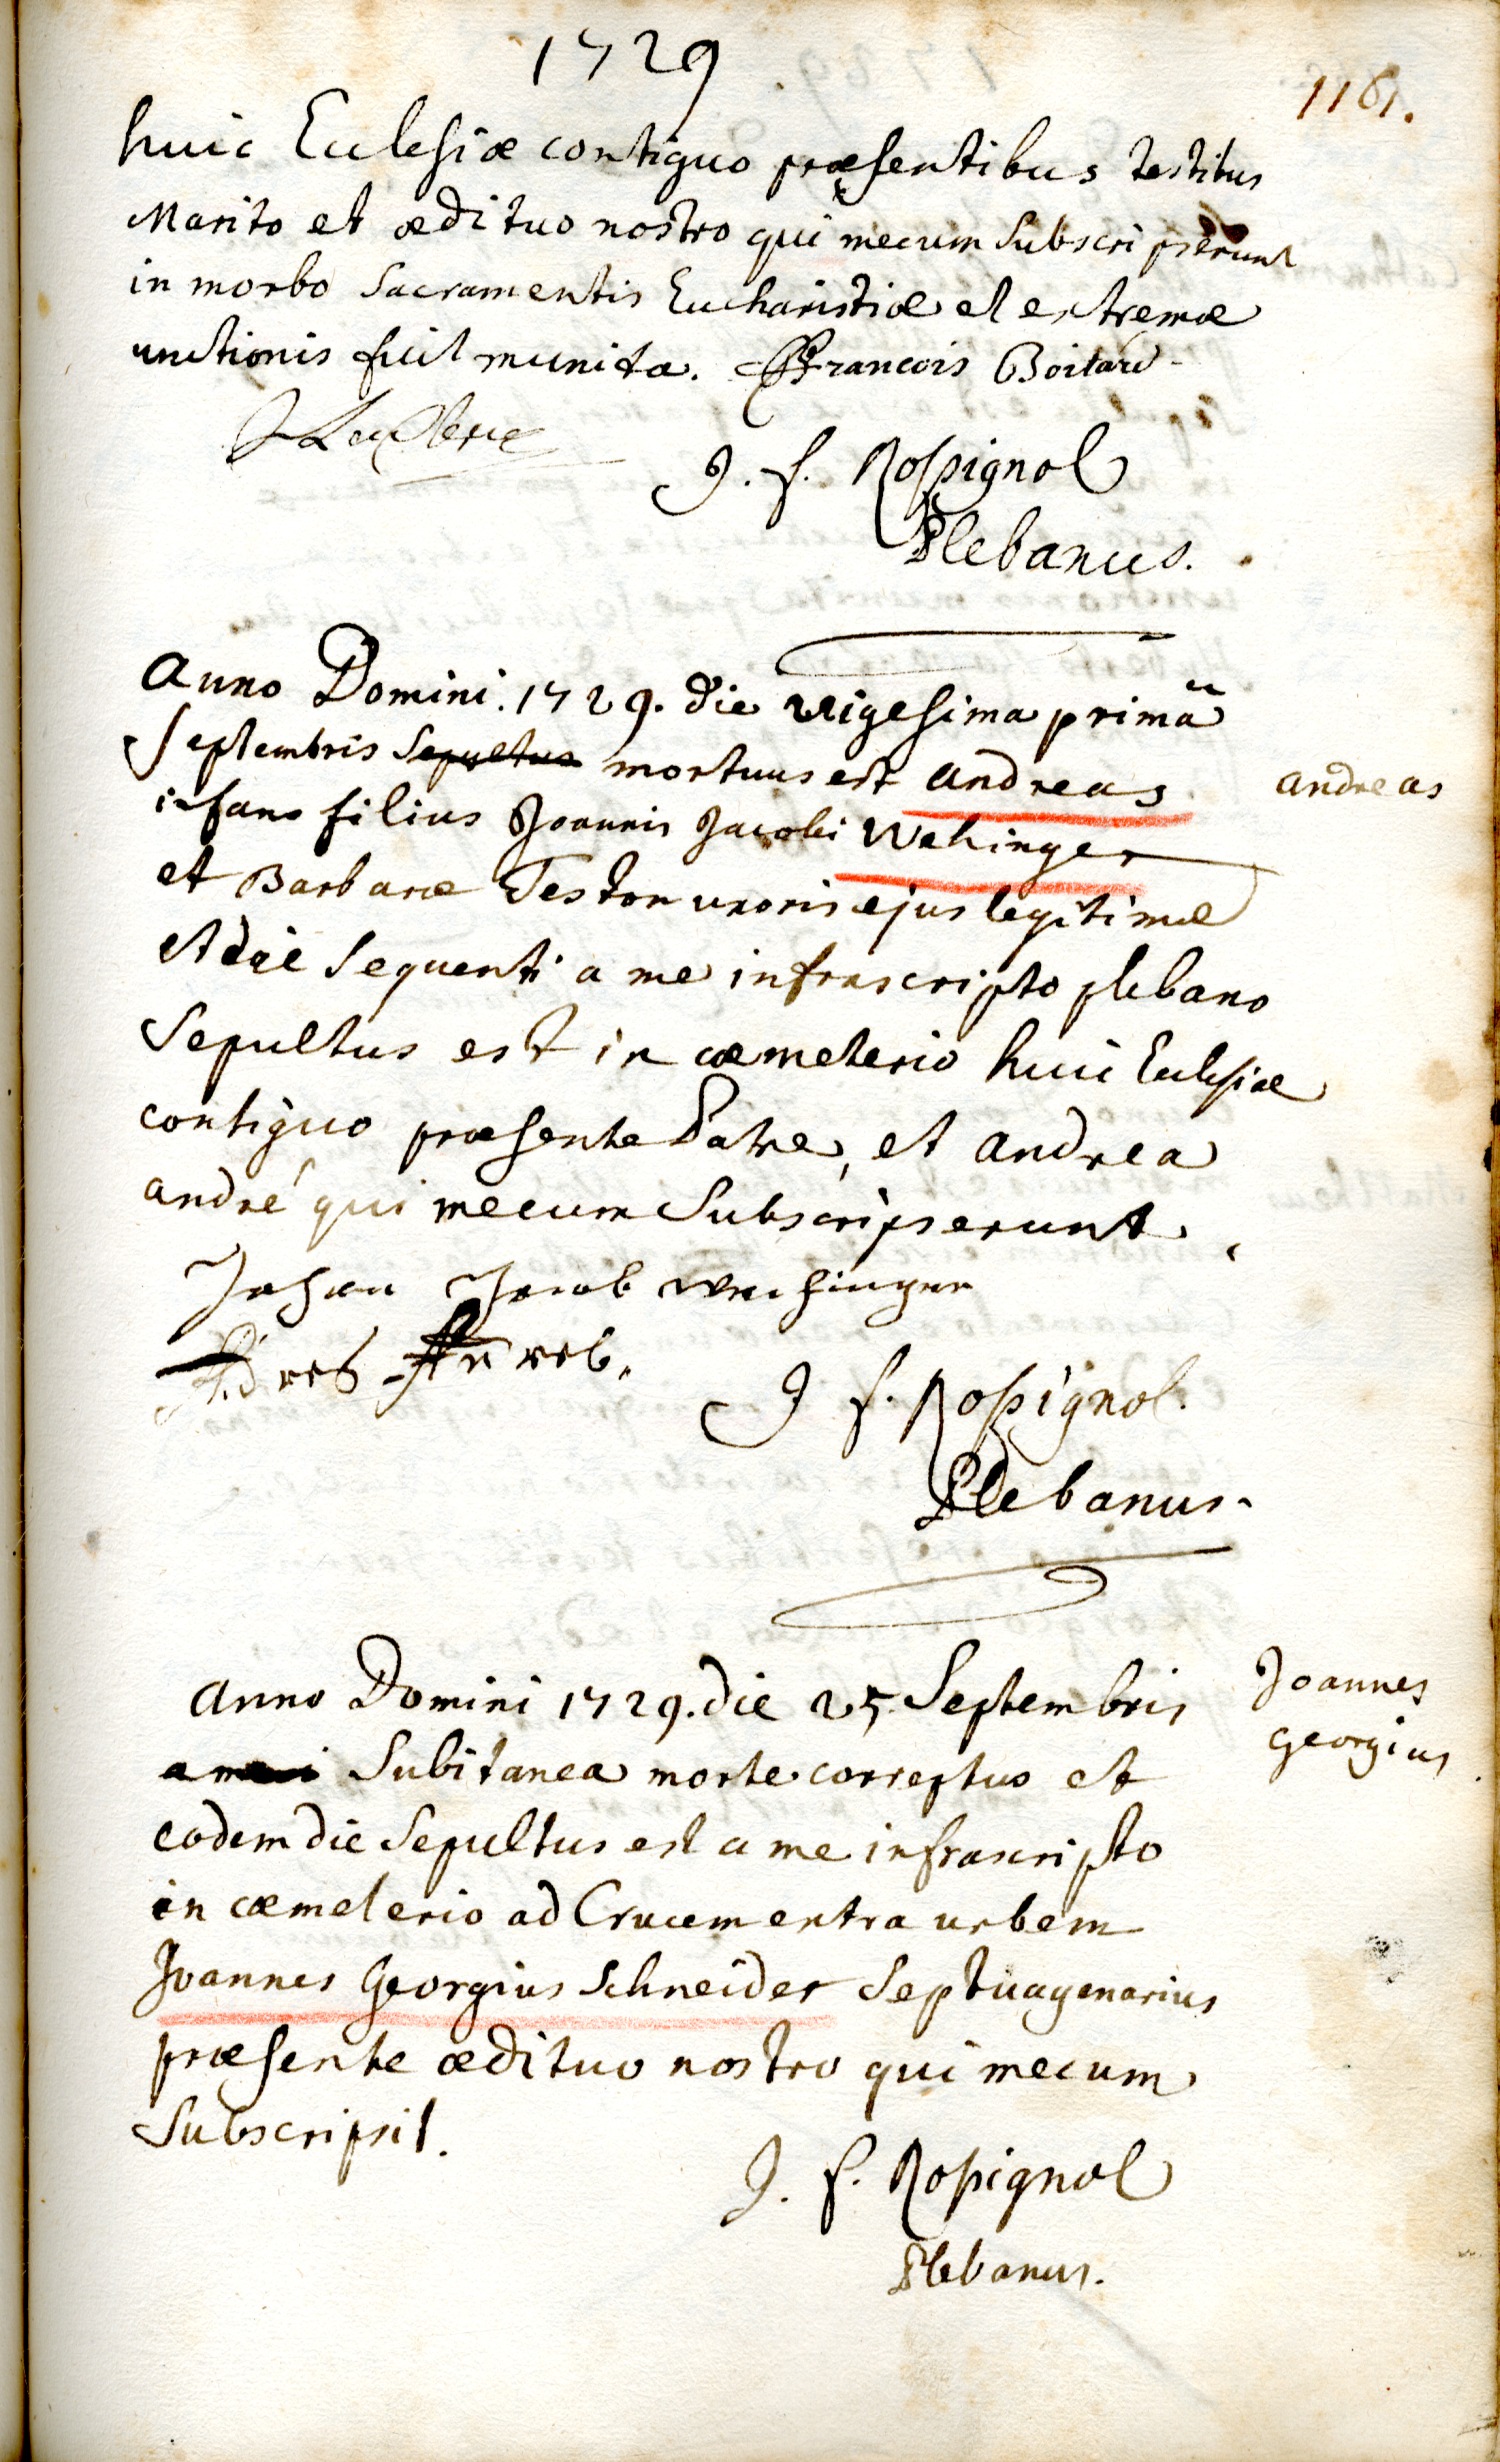 1729
1161.
huic Ecclesiæ contiguo præsentibus testibus
Marito et ædituo nostro qui mecum subscripserunt
in morbo sacramentis Eucharistiæ et extremæ
unctionis fuit munita. Francois Boitard
J. f. Rossignol
Plebanus.
Anno Domini. 1729. die vigesima prima
Septembris sepultus mortuus est andreas
andreas
infans filius Joannis Jacobi Wehinger
et Barbaræ Testor uxoris ejus legitimæ
et die sequenti a me infrascripto plebano
sepultus est in cæmeterio huic Ecclesiæ
contiguo præsente Patre, et andrea
andré qui mecum subscripserunt.
Johan Jacob
J f. Rossignol.
Plebanus.
Joannes
Georgius
Anno Domini 1729. die 25 Septembris
subitanea morte correptus et
eodem die sepultus est a me infrascripto
in cæmeterio ad Crucem extra urbem
Joannes Georgius Schneider septuagenarius
præsente ædituo nostro qui mecum
subscripsit.
J. f. Rossignol
Plebanus.